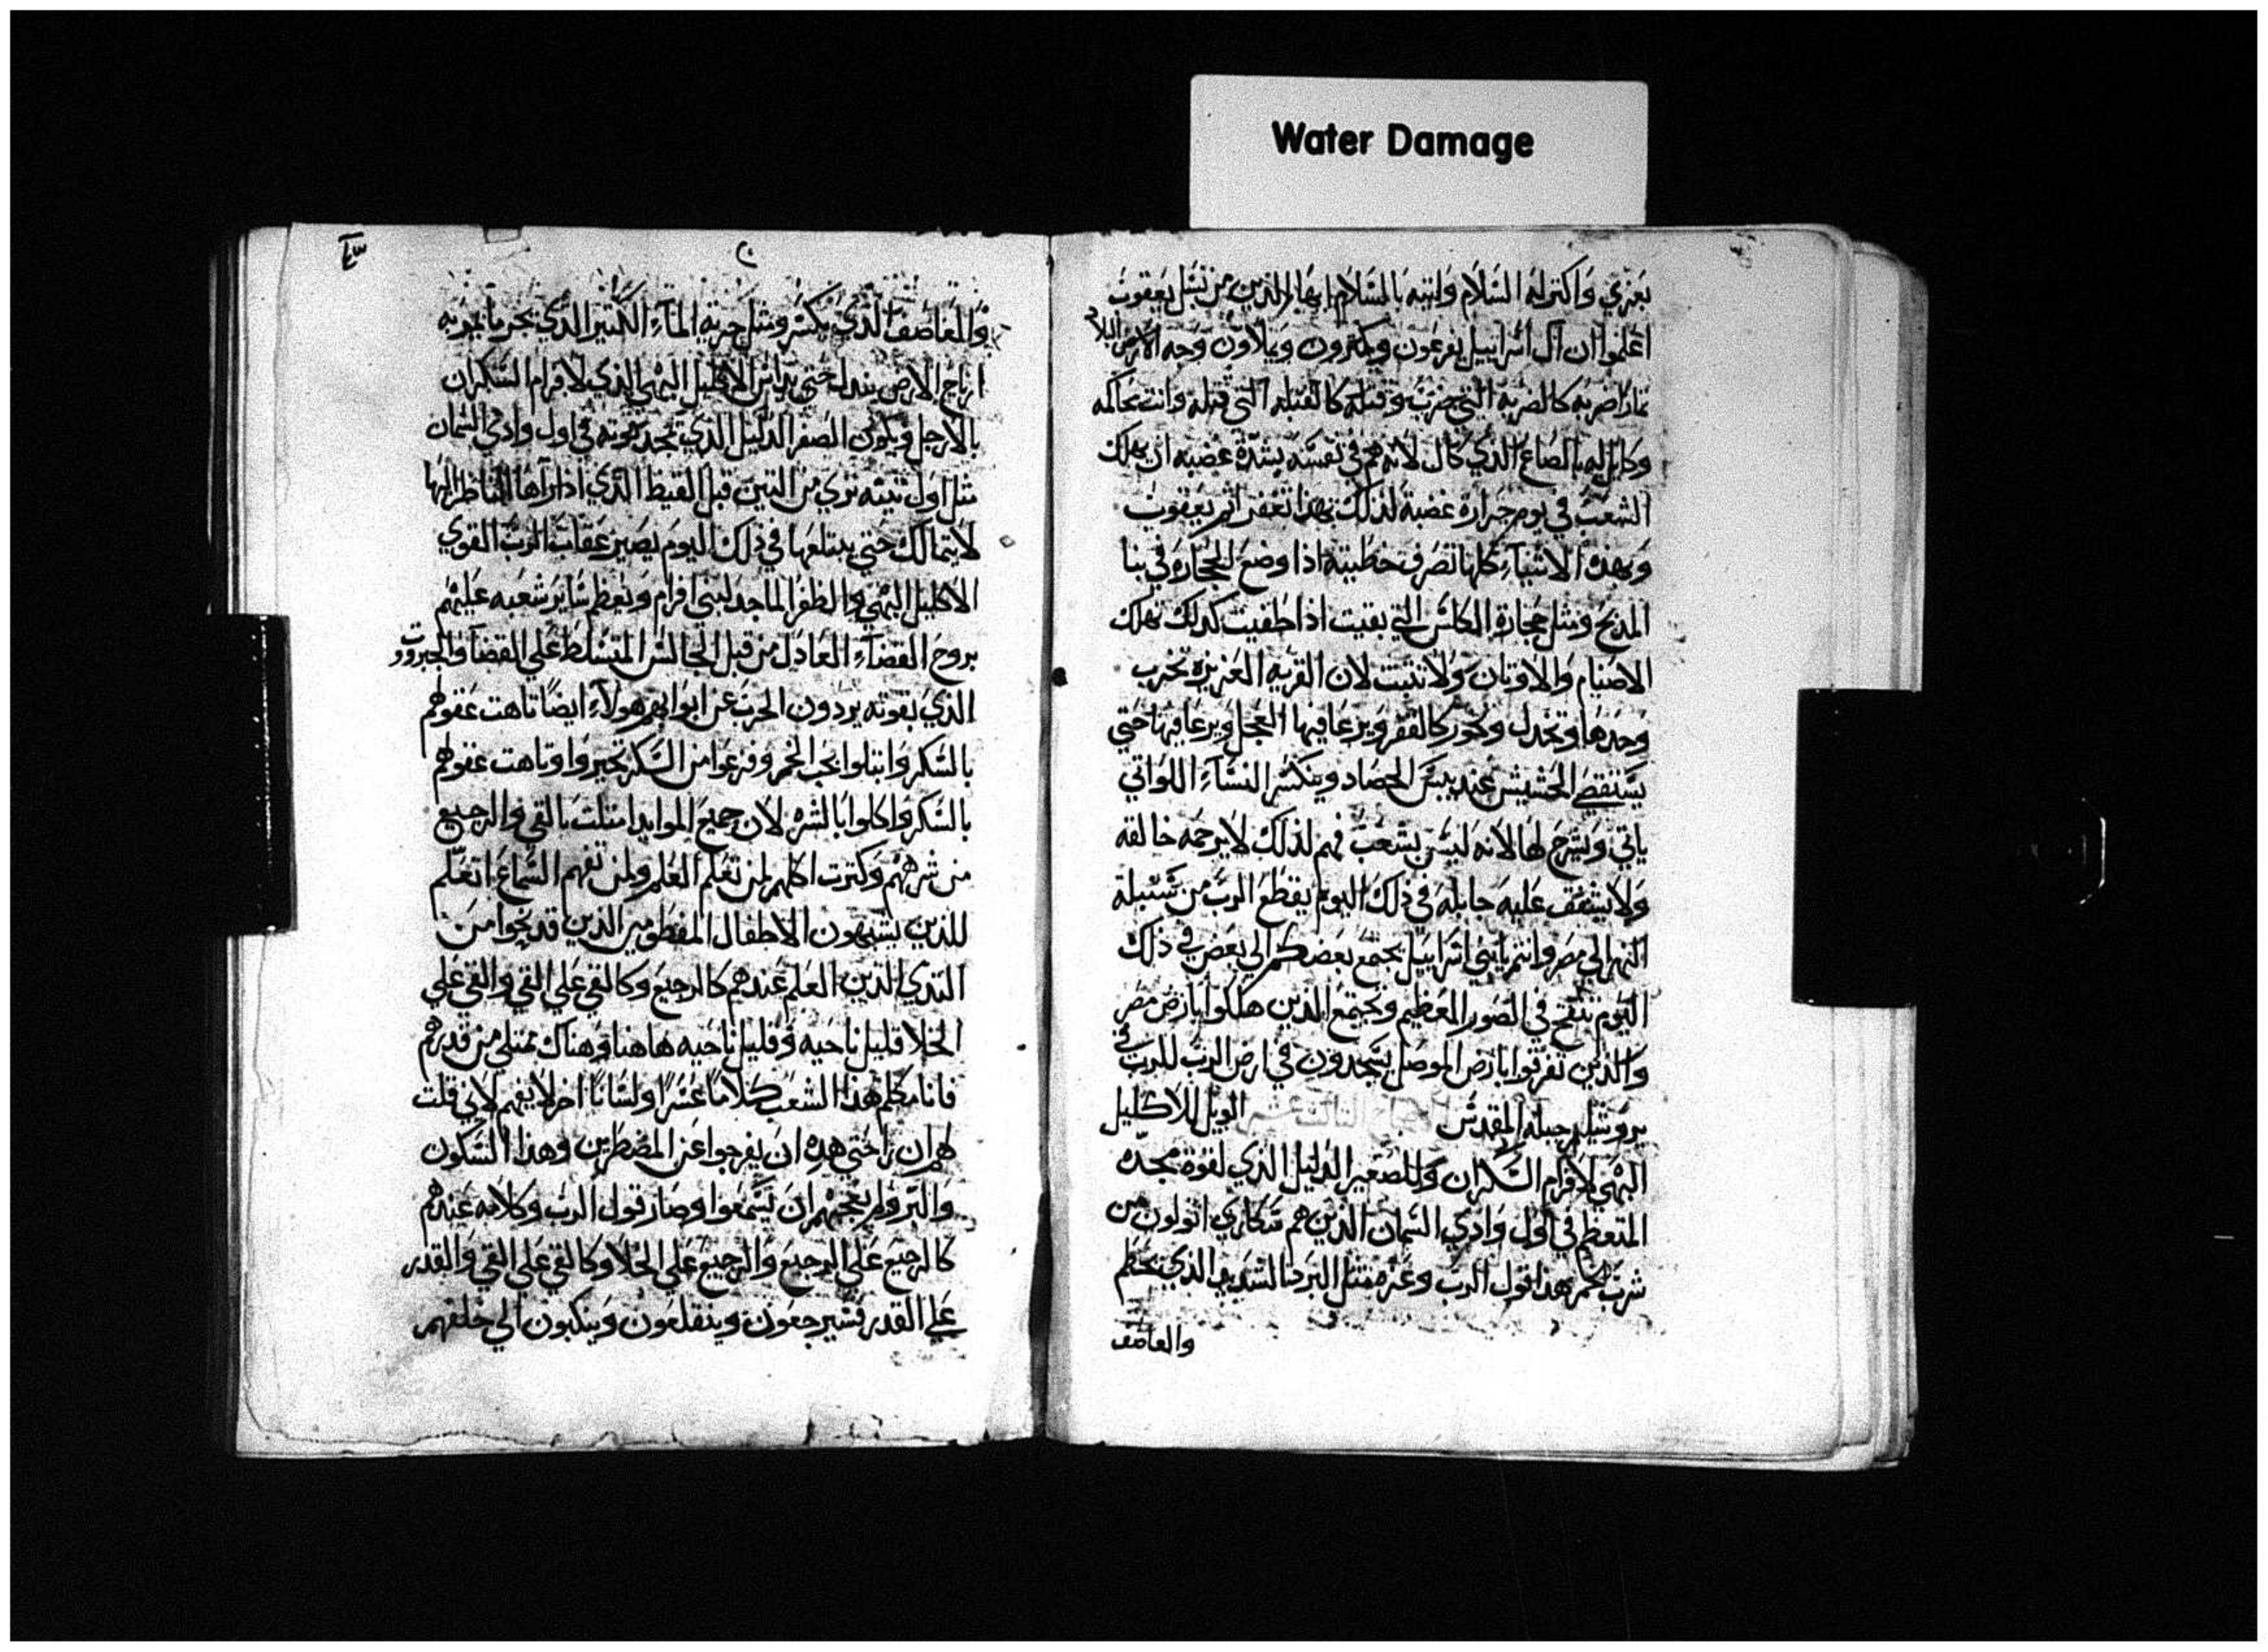 Water Damage
بعزي واكتر له السلام واتيه بالسلام ايها الذين من نسل يعقوب
اعلموا ان ال اسراييل يفرعون ويكترون ويملاون وجه الارض البلاد
ضربه كالضربه التي ضرب وقتله كالقتله التي قتله وانت تحاكمه
وكايل له بالصاع الذي كال لانه هم في نفسه بشدة غضبه ان يهلك
الشعب في يوم حرارة غضبة لذلك بهذا تغفر اتم يعقوب
وبهذه الاشياء كلها تصرف خطيته اذا وضع الحجاره في بنا
المدبح ومثل حجارة الكلس التي بقيت اذا طفيت كدلك تهلك
الاصنام والاوتان ولا تتبت لان القريه العزيزه تخرب
وحدها وتخدل وتكور كالقفر ويرعا فيها العجل ويرعا فيها حتي
يستقصي الحشيش عند يبس الحصاد وينكسر النساء اللواتي
ياتي ويسرج لها لانه ليس بشعب فهم لذلك لا يرحمه خالقه
ولا يشفق عليه جابله في ذلك اليوم يقطع الرب من سنبلة
النهر الي مصر وانتم يابني اسراييل يجتمع بعضكم الي بعض في ذلك
اليوم ينفخ في الصور العظيم ويجتمع الذين هلكوا بارض مصر
والذين تفرقوا بارض الموصل يسجدون في ارض الرب للرب في
يروشليم جبله المقدس الويل للاكليل
البهي لافرام السكران وللصغير الدليل الذي لقوة مجده
المتعظم في اول وادي السمان الذين هم سكاري اتولون من
شرب الخمر هذا قول الرب وعزه متل البرد الشديد الذي يحطم
والعاصف
والعاصف الذي يكسر ومثل جرية الماء الكتير الذي يجر ما يمر به
ارتاج الارض يبدل حتي يداس الاكليل البهي الذي لافرام السكران
بالارجل ويكون الصغر الدليل الذي تمجد بقوته في اول وادي السمان
مثل اول تينه تري من التين قبل القيظ الذي اذا راها الناظر اليها
لا يتمالك حتي يبتلعها في ذلك اليوم يصير عقاب الرب القوي
الاكليل البهي والظفر الماجد لبني افرام ويعظم ساير شعبه عليهم
بروح القضاء العادل من قبل الجالس المتسلط علي القضا والجبروت
الذي بقوته يردون الحرب عن ابوابهم هولاء ايضا تاهت عقولهم
بالسكر وابتلوا بحب الخمر وفرعوا من السكر تحيروا وتاهت عقولهم
بالسكر واكلوا بالشره لان جميع الموايد امتلت بالقي والرجيع
من شرههم وكترت اكلهم لمن تعلم العلم ولمن تفهم السماع اتعلم
للذين يشبهون الاطفال المفطومين الذين قد نحوا من
التدي الذين العلم عندهم كالرجيع وكالقي علي القي والقي علي
الخلا قليل ناحيه وقليل ناحيه هاهنا وهناك تمتلي من قدرهم
فانا مكلم هذا الشعب كلاما عسرا ولسانا اخر لا يفهم لاني قلت
لهم ان راحتي هذه ان يفرجوا عن المضطرين وهذا السكون
والتر ولم يعجبهم ان يسمعوا وصار قول الرب وكلامه عندهم
كالرجيع علي الرجيع والرجيع علي الخلا وكالقي علي القي والقدر
علي القدر فسيرجعون وينقلعون وينكبون الي خلفهم